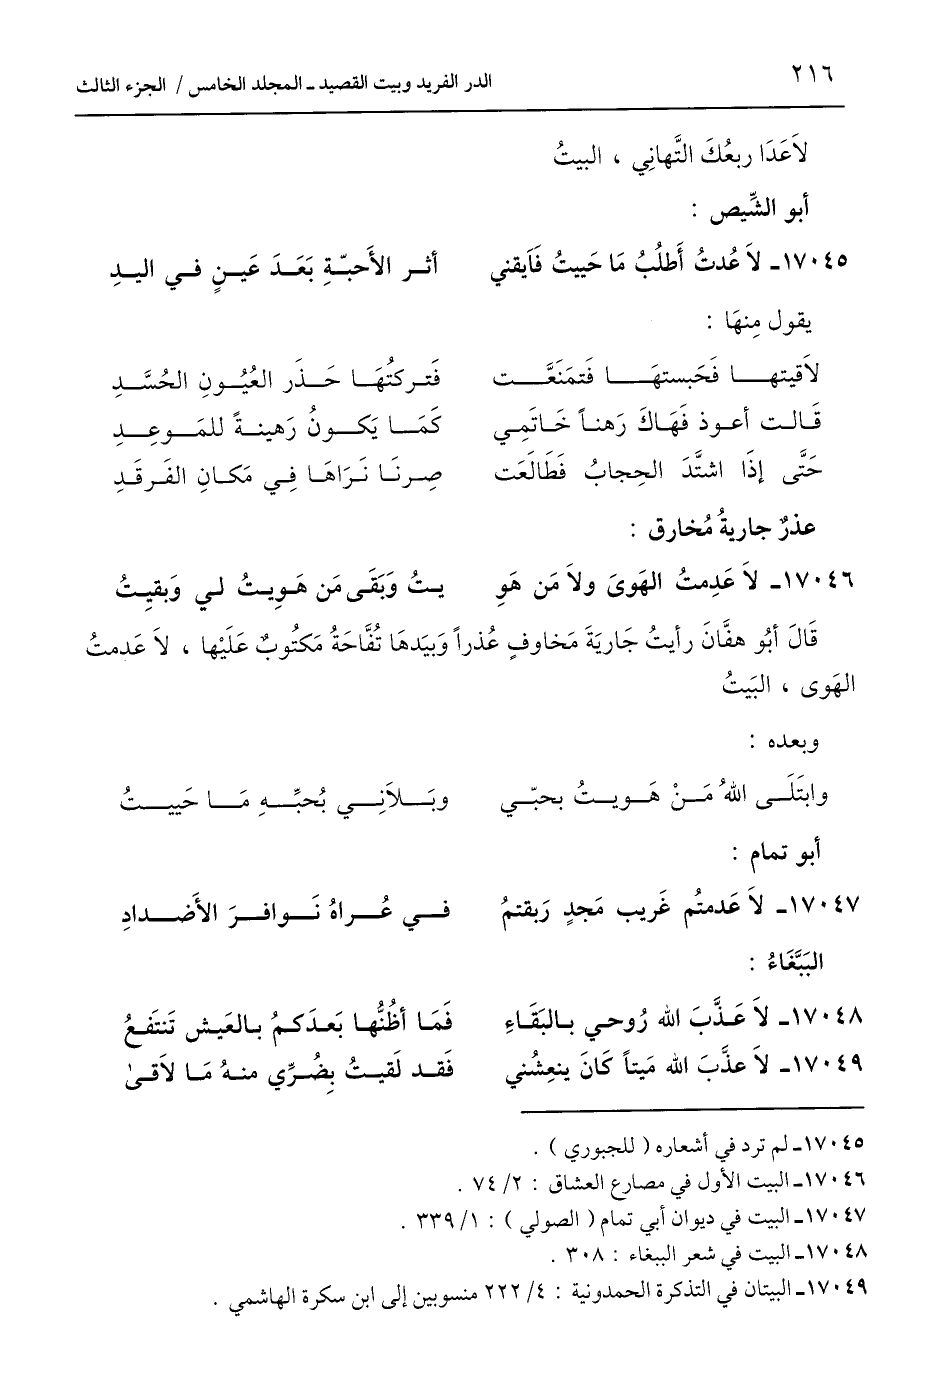 ٢١٦
الدر الفريد وبيت القصيد ـ المجلد الخامس / الجزء الثالث
لاَعَدَا ربعُكَ التَّهانِي ، البيتُ
أبو الشِّيص :
١٧٠٤٥ـ لاَ عُدتُ أَطلُبُ مَا حَيِيتُ فَآيقني    أثر الأَحبّةِ بَعَدَ عَينٍ في اليدِ
يقول مِنهَا :
لاَقيتهـا فَحَبستهَـا فَتمنَعَّـت    فَتركتُهَـا حَـذر العُيُـونِ الحُسَّـدِ
قَالت أعوذ فَهَاكَ رَهناً خَاتمِي    كَمَـا يَكـونُ رَهينةً للمَـوعِـدِ
حَتَّى إِذَا اشتَّدَ الحِجابُ فَطَالَعَت    صِرنَا نَرَاهَا فِي مَكانِ الفَرقَدِ
عذرٌ جاريةُ مُخارق :
١٧٠٤٦ـ لاَ عَدِمتُ الهَوىَ ولاَ مَن هَوِ    يـتُ وَبَقَى مَن هَوِيتُ لي وَبقيِتُ
قَالَ أبُو هفَّانَ رأيتُ جَاريَةَ مَخاوفٍ عُذراً وَبيَدهَا تُفَّاحَةُ مَكتُوبٌ عَلَيْها ، لاَ عَدمتُ
الهَوى ، البَيتُ
وبعده :
وابتَلَـى اللهُ مَـنْ هَـويـتُ بحبّـي    وبَـلاَنِـي بُحبِّـهِ مَـا حَييـتُ
أبو تمام :
١٧٠٤٧ـ لاَ عَدمتُم غَرِيب مَجدٍ رَبقتمُ    فـي عُـراهُ نَـوافـرَ الأَضـدادِ
البَبَّغَاءُ :
١٧٠٤٨ـ لاَ عَذَّبَ الله رُوحي بـالبَقَـاءِ    فَمَا أَظُنُّها بَعدَكمُ بـالعَيش تَنتَفعُ
١٧٠٤٩ـ لاَ عذَّبَ الله مَيتاً كَانَ ينعِشُني    فَقد لَقيتُ بِضُرِّي منهُ مَا لاَقىٰ
١٧٠٤٥ـ لم ترد في أشعاره ( للجبوري ) .
١٧٠٤٦ـ البيت الأول في مصارع العشاق : ٢/ ٧٤ .
١٧٠٤٧ـ البيت في ديوان أبي تمام ( الصولي ) : ١/ ٣٣٩ .
١٧٠٤٨ـ البيت في شعر الببغاء : ٣٠٨ .
١٧٠٤٩ـ البيتان في التذكرة الحمدونية : ٤/ ٢٢٢ منسوبين إلى ابن سكرة الهاشمي .